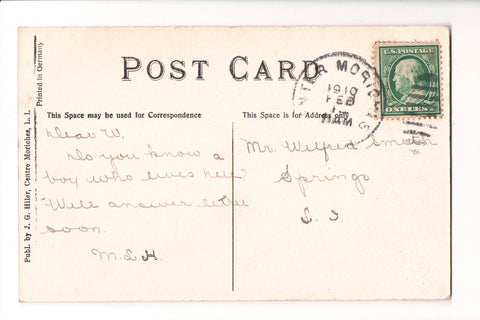 POST CARD
This Space may be used for Correspondence
This Space is for Address only
Printed in Germany
Publ. by J. G. Hiler, Centre Moriches, L. I.
U.S. POSTAGE
ONE CENT
TER MORICHES
1910
FEB
11AM
Dear W.
Do you know a
boy who lives here?
Will answer letter
soon.
M.L.H.
Mr. Wilfred Smith
Springs
L. I.